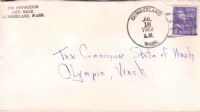 CUMBERLAND, WASH.
CUMBERLAND
JUL
18
A.M.
WASH.
Tax Commission State of Wash
Olympia, Wash